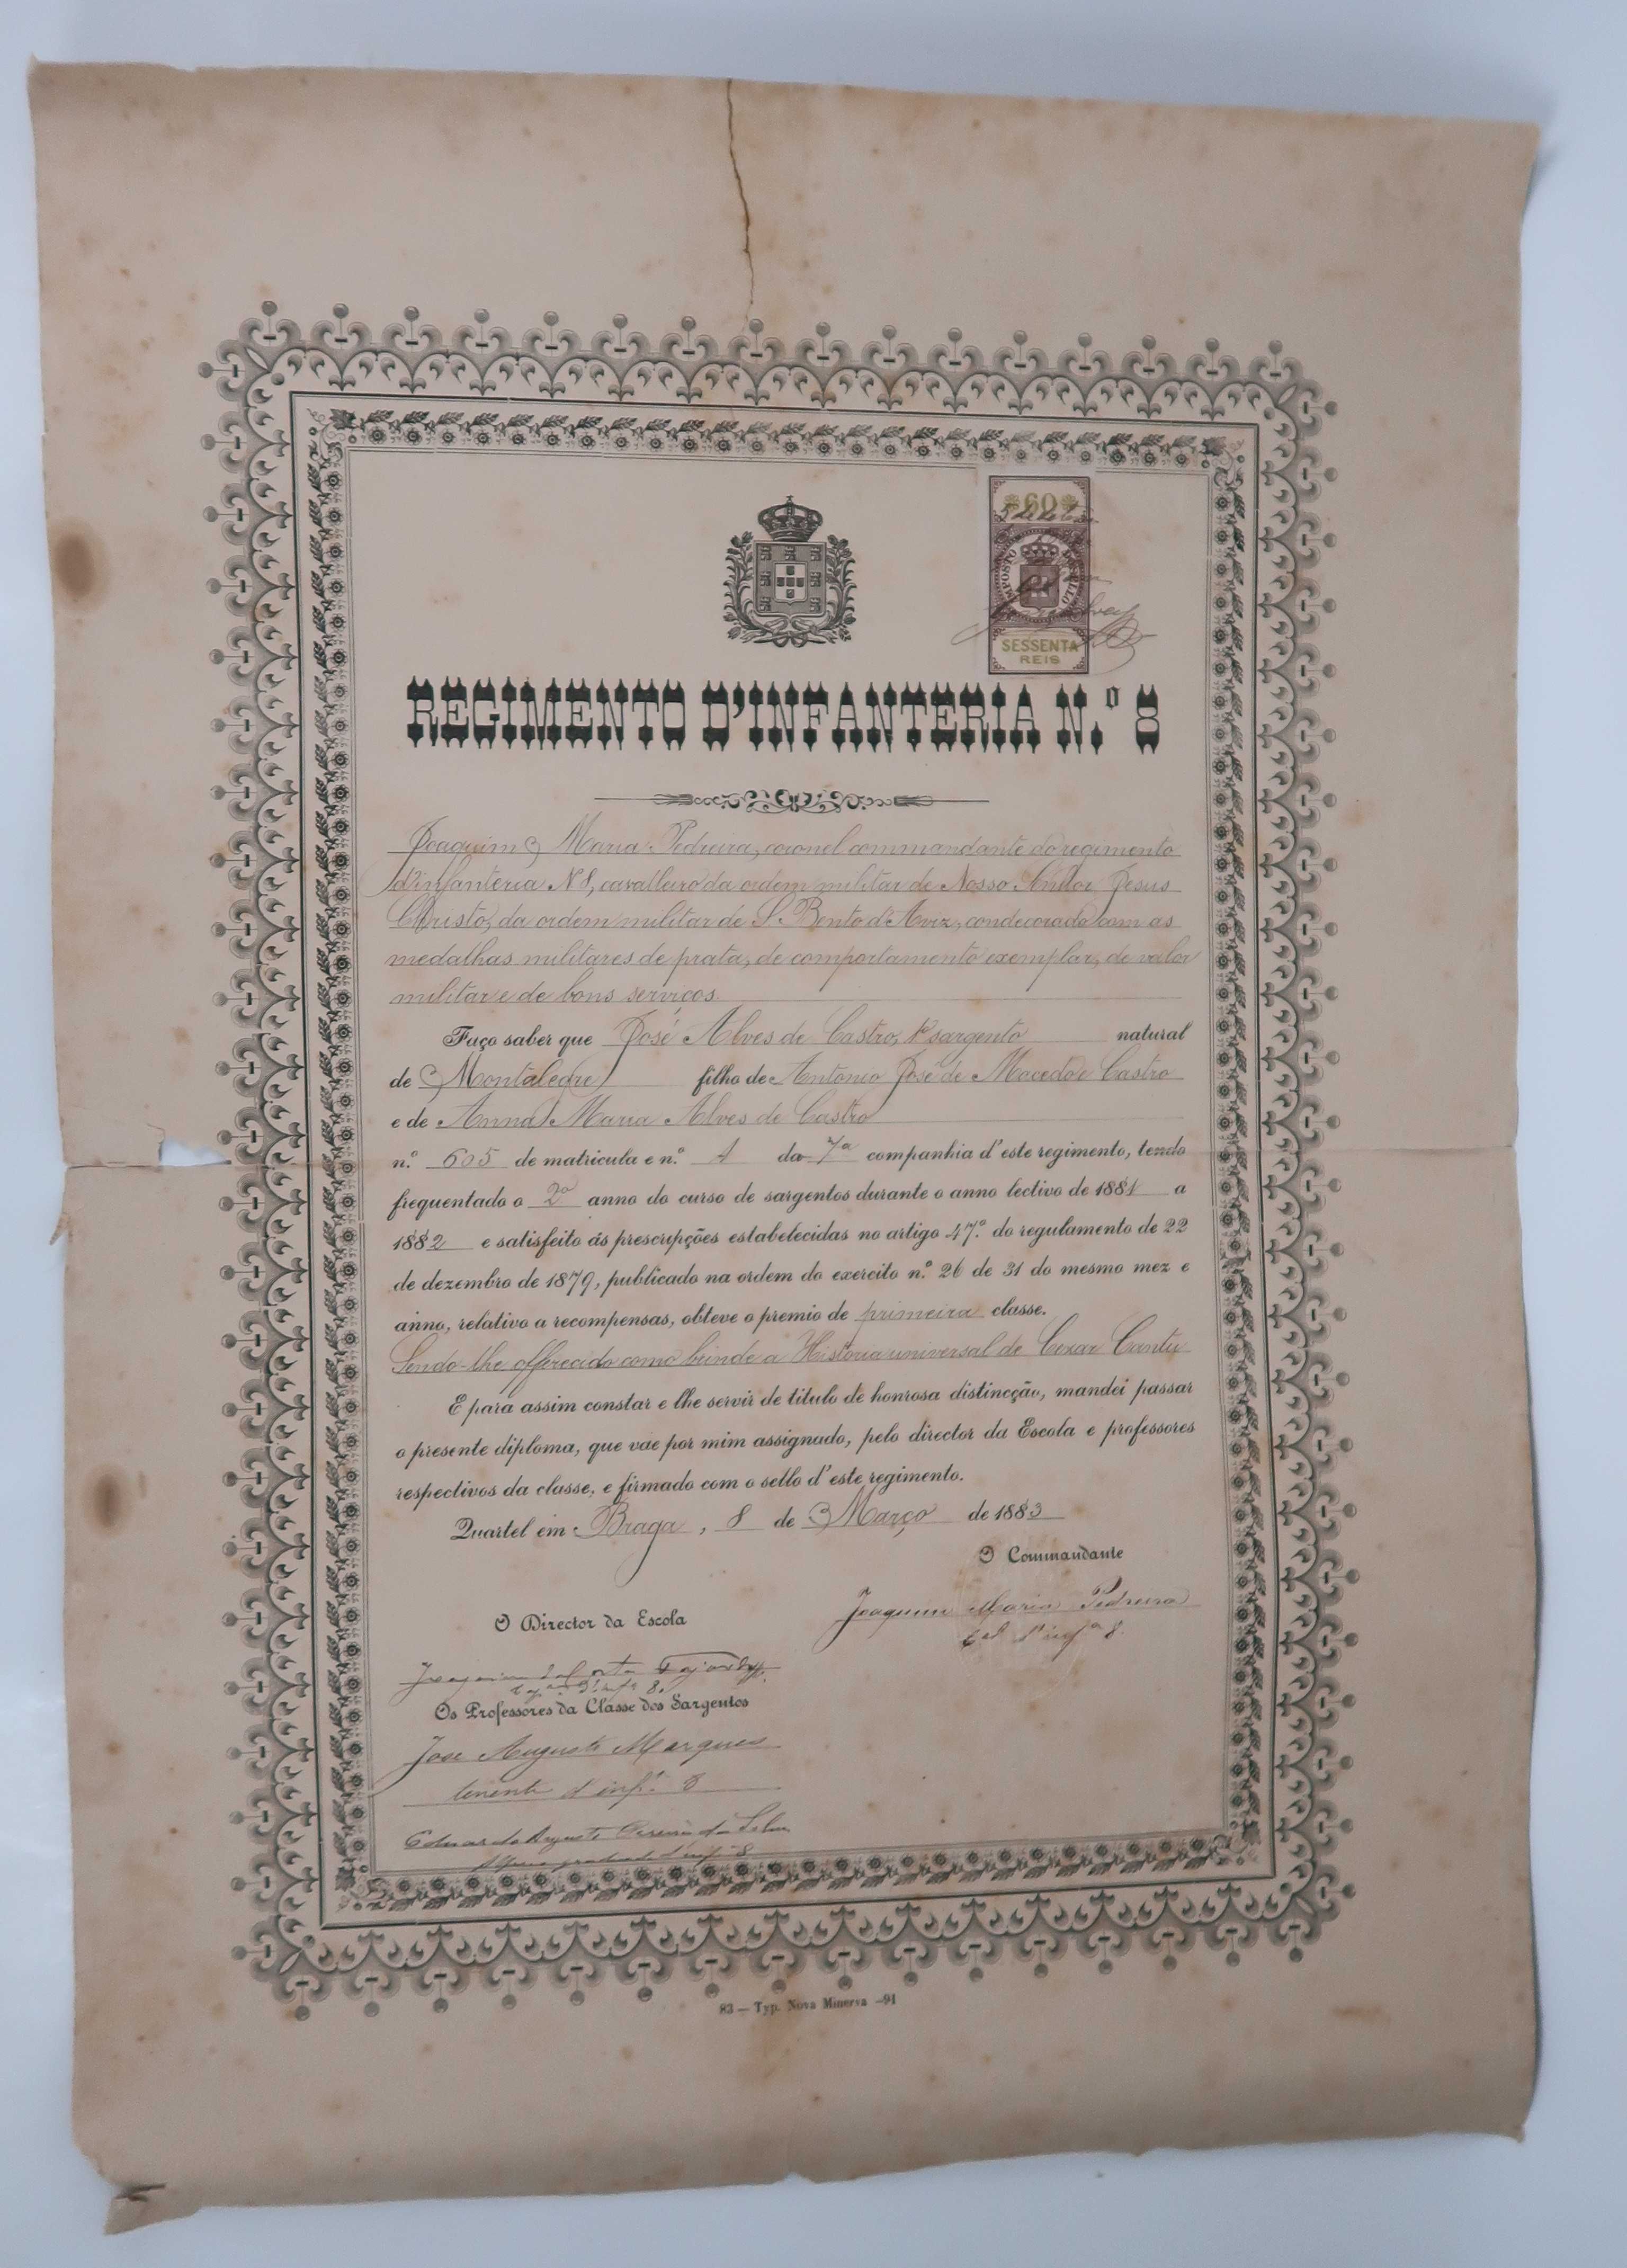 60
IMPOSTO DO SELLO
SESSENTA
REIS
REGIMENTO D'INFANTERIA N.º 8
Joaquim Maria Pedreira, coronel commandante do regimento
d'infanteria Nº 8, cavalleiro da ordem militar de Nosso Senhor Jesus
Christo, da ordem militar de S. Bento d'Aviz, condecorado com as
medalhas militares de prata, de comportamento exemplar, de valor
militar e de bons serviços.
Faço saber que José Alves de Castro, 1º sargento natural
de Montalegre filho de Antonio José de Macedo e Castro
e de Anna Maria Alves de Castro
n.º 605 de matricula e n.º 1 da 7ª companhia d'este regimento, tendo
frequentado o 2º anno do curso de sargentos durante o anno lectivo de 1881 a
1882 e satisfeito ás prescripções estabelecidas no artigo 47.º do regulamento de 22
de dezembro de 1879, publicado na ordem do exercito n.º 26 de 31 do mesmo mez e
anno, relativo a recompensas, obteve o premio de primeira classe.
Sendo-lhe offerecido como brinde a Historia universal de Cezar Cantu
E para assim constar e lhe servir de titulo de honrosa distincção, mandei passar
o presente diploma, que vae por mim assignado, pelo director da Escola e professores
respectivos da classe, e firmado com o sello d'este regimento.
Quartel em Braga, 8 de Março de 1883
O Commandante
Joaquim Maria Pedreira
Cel d'infª 8
O Director da Escola
Joaquim
Os Professores da Classe dos Sargentos
Jose Augusto Marques
tenente d'infª 8
Eduardo Augusto Pereira da Silva
Alferes graduado d'infª 8
83 — Typ. Nova Minerva — 91